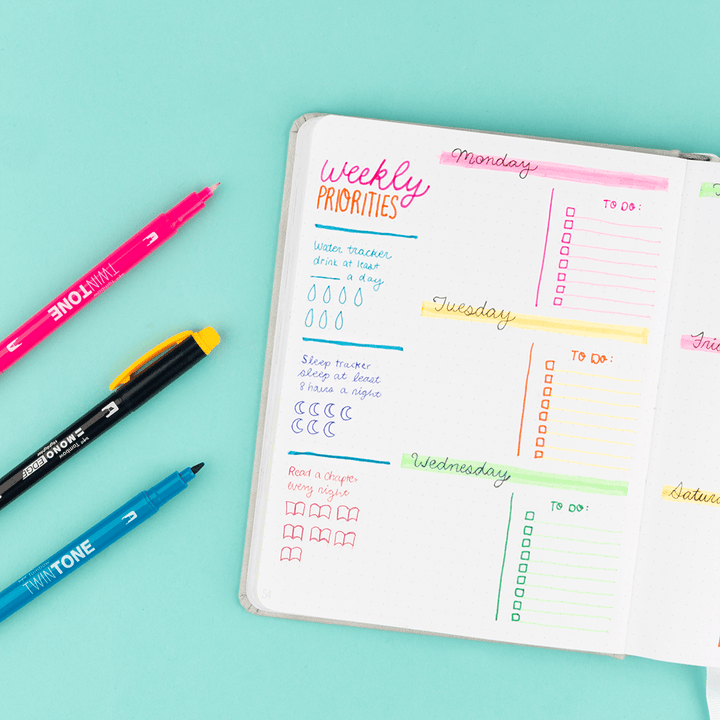 weekly
PRIORITIES
Water tracker
drink at least
____ a day
Sleep tracker
sleep at least
8 hours a night
Read a Chapter
every night
Monday
TO DO:
Tuesday
TO DO:
Wednesday
TO DO:
TWINTONE
Tombow
MONO EDGE
TWINTONE